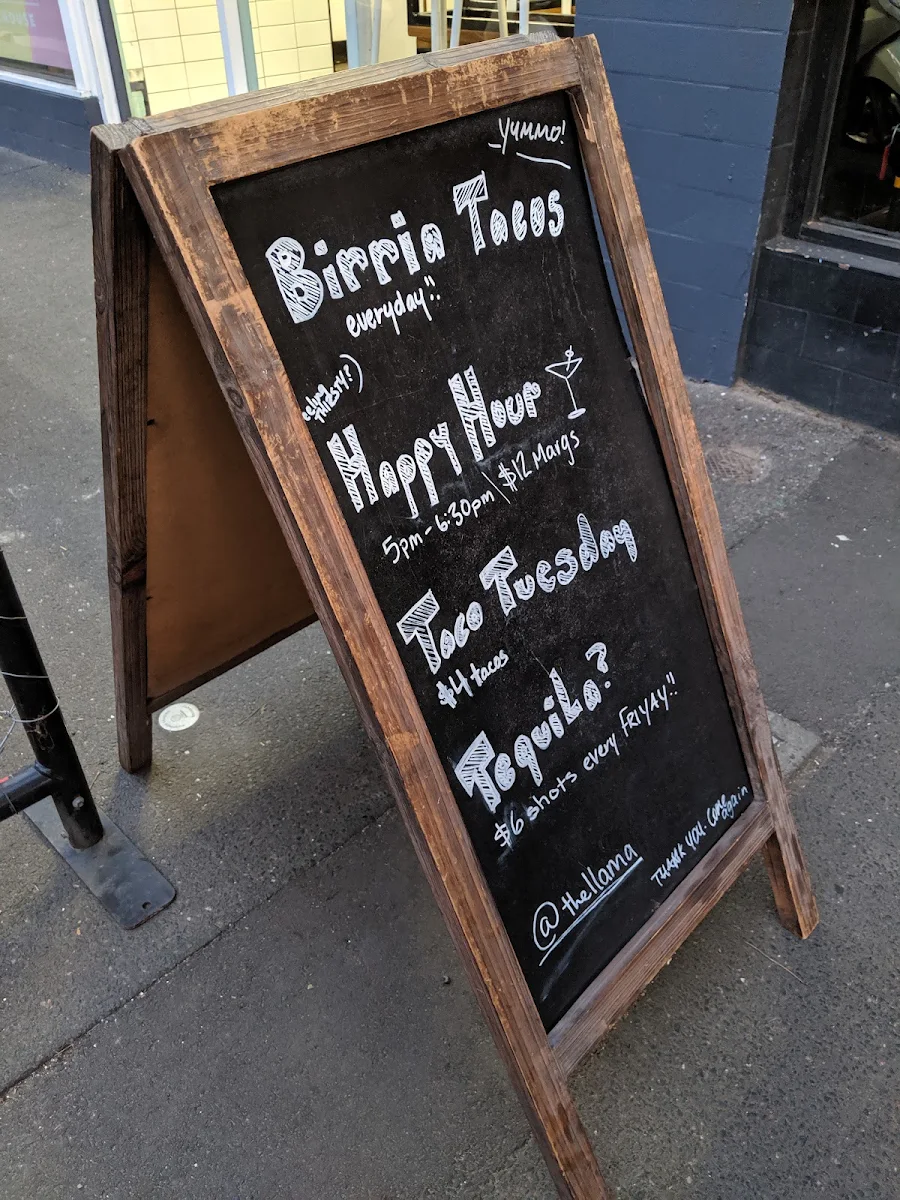 YUMMO!
Birria Tacos
everyday!!
THIRSTY?)
Happy Hour
5pm-6:30pm \ $12 Margs
Taco Tuesday
$4 tacos
Tequila?
$6 shots every FRIYAY!!
@thellama
THANK YOU. Come
again